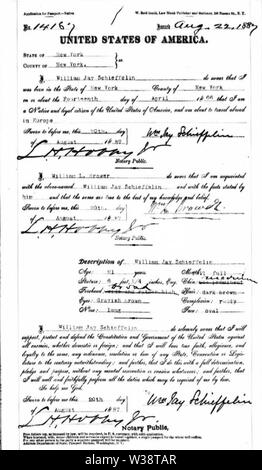 Application for Passport—Native
No. 1416
Issued Aug. 22. 1887
UNITED STATES OF AMERICA.
STATE OF New York
COUNTY OF New York.
I, William Jay Schieffelin do swear that I
was born in the State of New York County of New York
on or about the Fourteenth day of April
a Native and loyal citizen of the United States of America, and am about to travel abroad
in Europe
Sworn to before me, this 20th day
of August 1887
Wm Jay Schieffelin
Notary Public.
I, William L. Brower do swear that I am acquainted
with the above-named William Jay Schieffelin and with the facts stated by
him and that the same are true to the best of my knowledge and belief.
Sworn to before me, this 20th day
of August 1887
Notary Public.
Description of William Jay Schieffelin
Age: 21 years Mouth: full
Stature: feet inches, Eng. Chin:
Forehead: Hair: dark brown
Eyes: Grayish brown Complexion: ruddy
Nose: long Face: oval
I, William Jay Schieffelin do solemnly swear that I will
support, protect and defend the Constitution and Government of the United States against
all enemies, whether domestic or foreign; and that I will bear true faith, allegiance, and
loyalty to the same, any ordinance, resolution or law of any State, Convention or Legis-
lature to the contrary notwithstanding; and further, that I do this with a full determination,
pledge and purpose, without any mental reservation or evasion whatsoever; and further, that
I will well and faithfully perform all the duties which may be required of me by law.
So help me God.
Sworn to before me, this 20th day
of August 1887
Wm Jay Schieffelin
Notary Public.
alamy
W38TAR